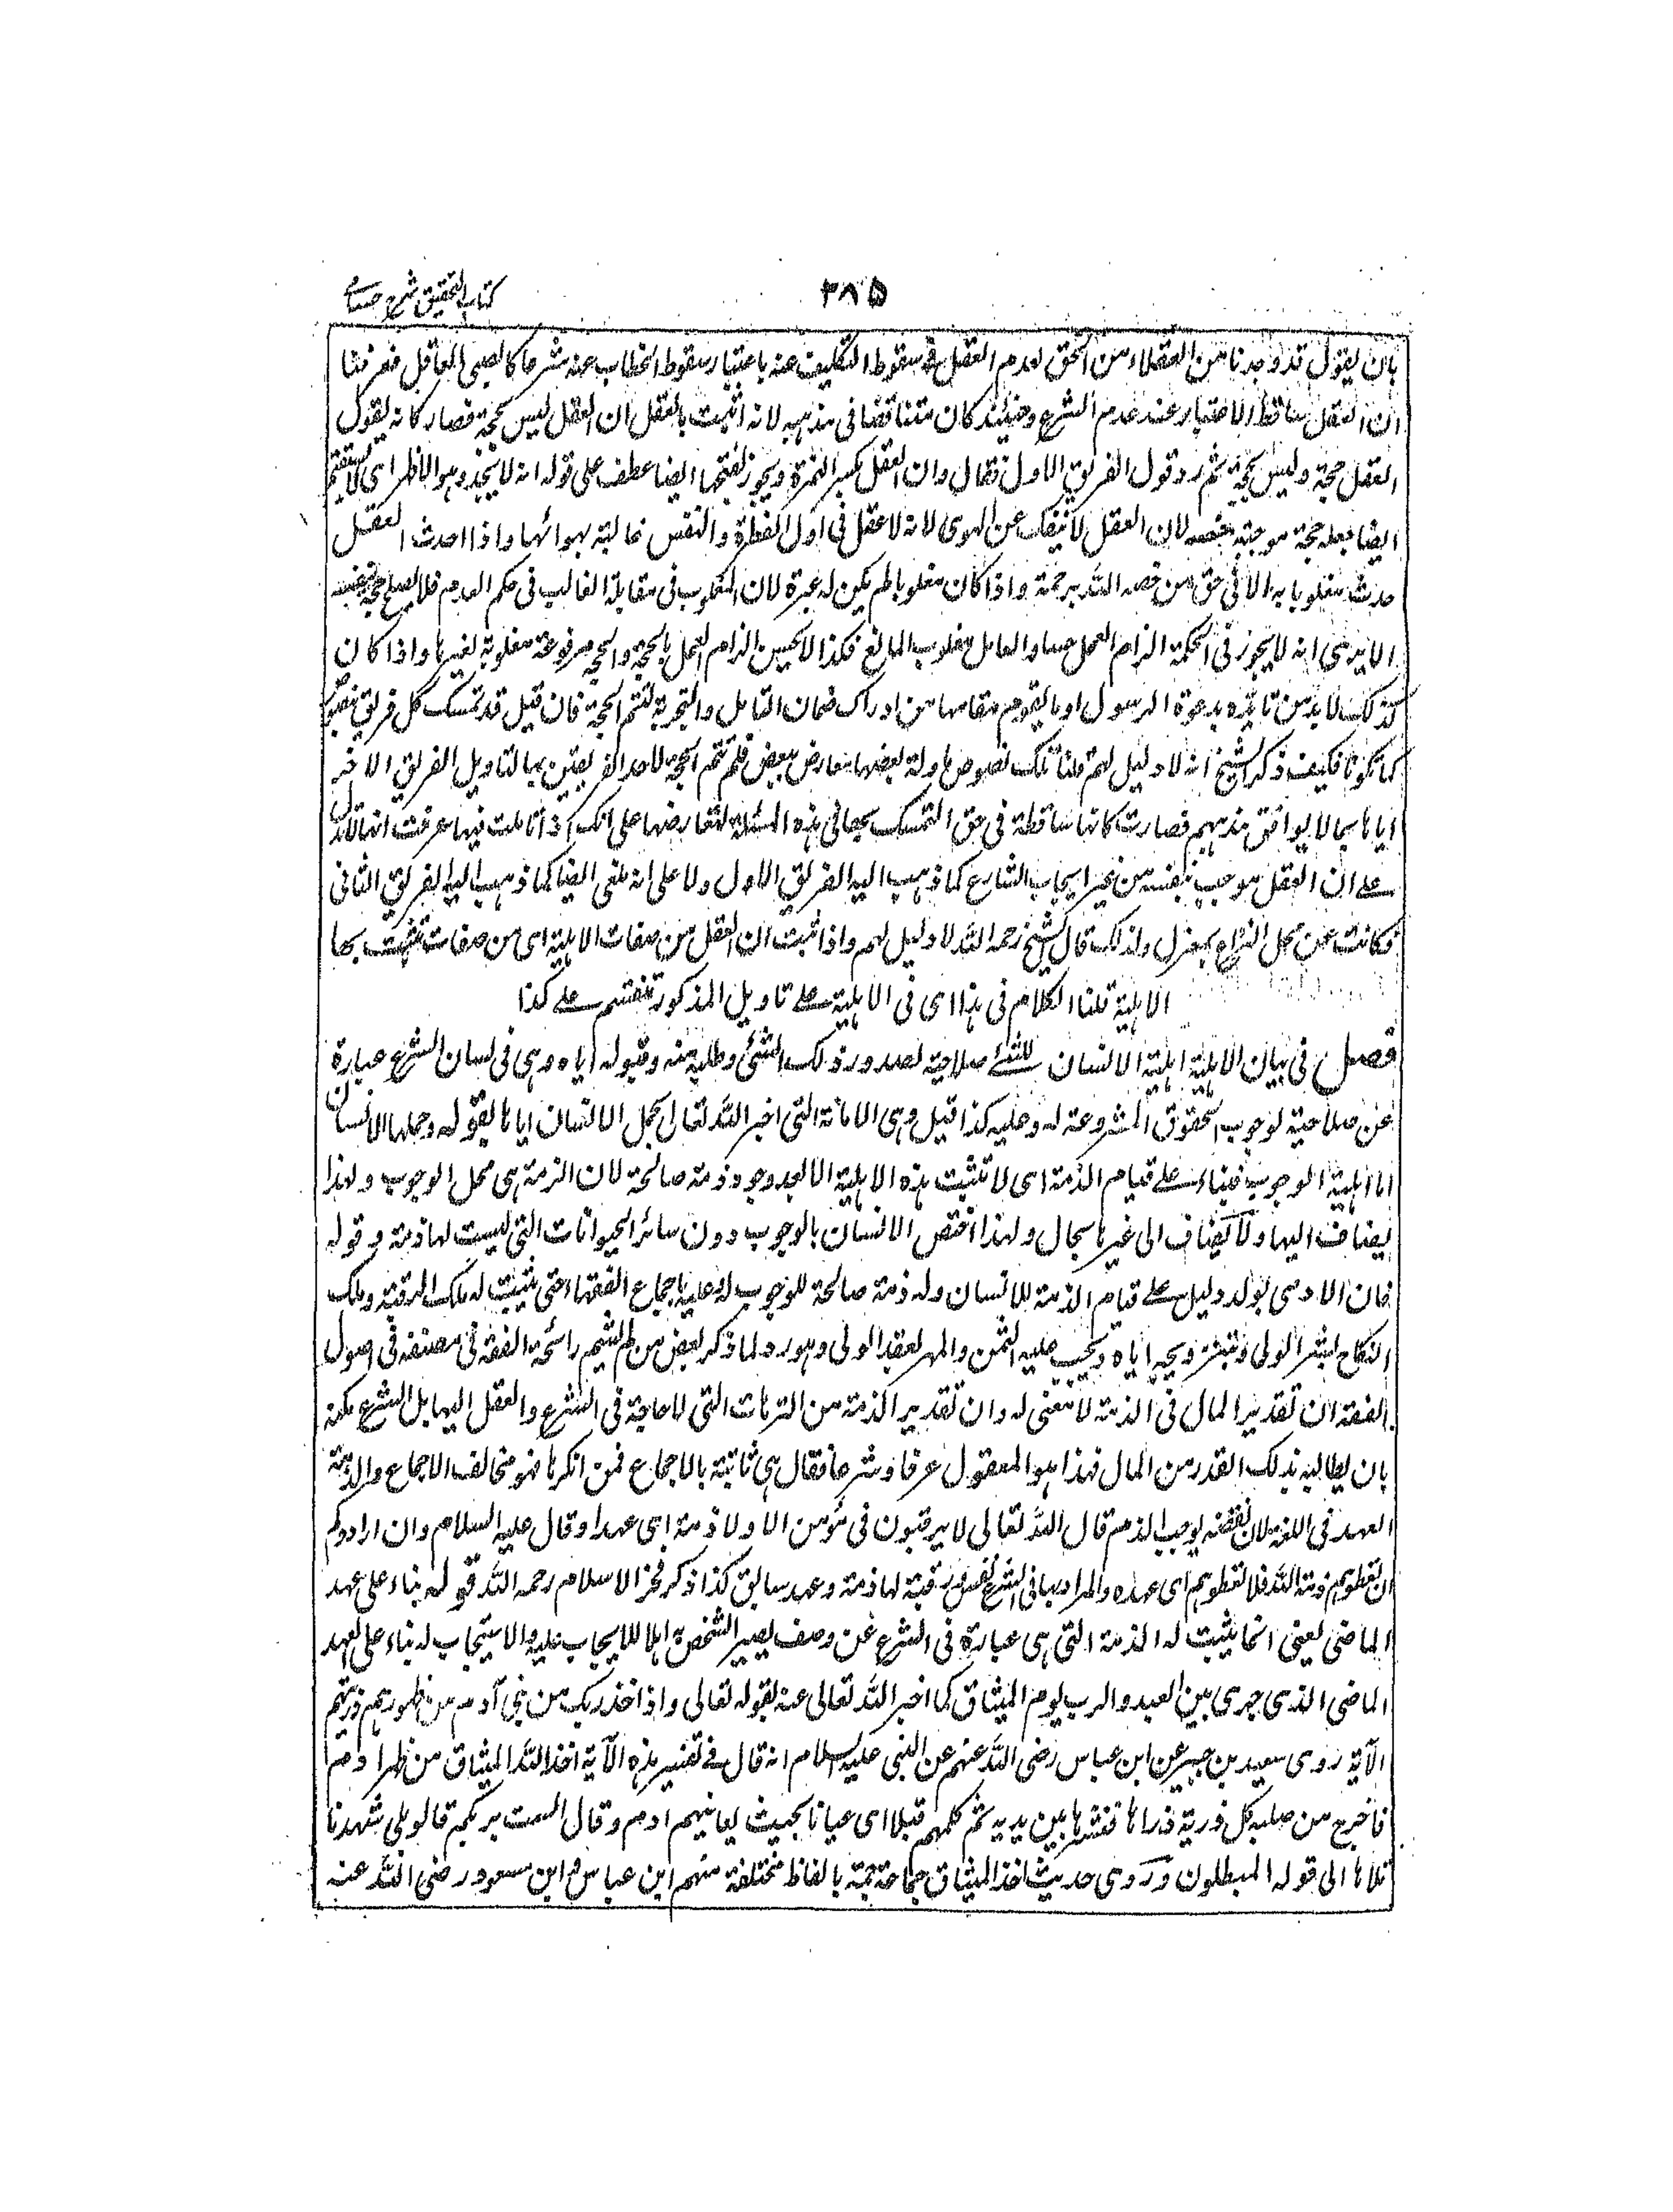 كتاب التحقيق شرح حسامي
٣٨٥
بان يقول قد وجدنا من العقلاء من الحق بعدم العقل في سقوط التكليف عنه باعتبار سقوط الخطاب عنه شرعا كالصبي العاقل فعرفنا
ان العقل ساقط الاعتبار عند عدم الشرع وحينئذ كان متناقضا في مذهبه لانه اثبت بالعقل ان العقل ليس بحجة فصار كانه يقول
العقل حجة وليس بحجة ثم رد قول الفريق الاول فقال وان العقل بكسر الهمزة ويجوز بفتحها ايضا عطف على قوله انه لا يجد وهو الاظهر اي لا يستقيم
ايضا جعله حجة موجبة بنفسه لان العقل لا ينفك عن الهوى لانه لا عقل في اول الفطرة والنفس غالبة بهوائها واذا احدث العقل
حدث مغلوبا به الا في حق من خصه الله برحمة واذا كان مغلوبا لم يكن له عبرة لان المغلوب في مقابلة الغالب في حكم العدم فلا يصلح حجة بنفسه
الا يرى انه لا يجوز في الحكمة الزام العمل حسا والعامل مغلوب المانع فكذا لا يحسن الزام العمل بالحجة والحجة مرفوعة مغلوبة لغيرها واذا كان
كذلك لا بد من تايده بدعوة الرسول او ما يقوم مقامها من ادراك ضمان التامل والتجربة لتتم الحجة فان قيل قد تمسك كل فريق بنصوص
كما ذكرنا فكيف ذكر الشيخ انه لا دليل لهم قلنا تلك نصوص ماولة بعضها معارض ببعض فلم تتم الحجة لاحد الفريقين بها لتاويل الفريق الاخر
اياها بما لا يوافق مذهبهم فصارت كانها ساقطة في حق التمسك بها في هذه المسئلة لتعارضها على انك اذا تاملت فيها عرفت انها لا تدل
على ان العقل موجب بنفسه من غير ايجاب الشارع كما ذهب اليه الفريق الاول ولا على انه ملغى ايضا كما ذهب اليه الفريق الثاني
فكانت عن محل النزاع بمعزل ولذلك قال الشيخ رحمه الله لا دليل لهم واذا ثبت ان العقل من صفات الاهلية اي من صفات تثبت بها
الاهلية قلنا الكلام في هذا اي في الاهلية على تاويل المذكور تنقسم على كذا
فصل في بيان الاهلية اهلية الانسان للشئ صلاحية لصدور ذلك الشئ وطلبه منه وقبوله اياه وهي في لسان الشرع عبارة
عن صلاحية لوجوب الحقوق المشروعة له وعليه كذا قيل وهي الامانة التي اخبر الله تعالى بحمل الانسان اياها بقوله وحملها الانسان
اما اهلية الوجوب فبناء على قيام الذمة اي لا تثبت هذه الاهلية الا بعد وجود ذمة صالحة لان الذمة هي محل الوجوب ولهذا
يضاف اليها ولا يضاف الى غيرها بحال ولهذا اختص الانسان بالوجوب دون سائر الحيوانات التي ليست لها ذمة وقوله
فان الادمي يولد دليل على قيام الذمة للانسان وله ذمة صالحة للوجوب له وعليه باجماع الفقهاء حتى يثبت له ملك الرقبة وملك
النكاح بشراء الولي وتزويجه اياه ويجب عليه الثمن والمهر بعقد الولي وهو رد لما ذكر بعض من لم يشم رائحة الفقه في مصنفه في اصول
الفقه ان تقدير المال في الذمة لا معنى له وان تقدير الذمة من الترهات التي لا حاجة في الشرع والعقل اليها بل الشرع مكنه
بان يطالبه بذلك القدر من المال فهذا هو المعقول عرفا وشرعا فقال هي ثابتة بالاجماع فمن انكرها فهو مخالف الاجماع والذمة
العهد في اللغة لان نقضه يوجب الذم قال الله تعالى لا يرقبون في مؤمن الا ولا ذمة اي عهدا وقال عليه السلام وان ارادوكم
ان تعطوهم ذمة الله فلا تعطوهم اي عهده والمراد بها في الشرع نفس ورقبة لها ذمة وعهد سابق كذا ذكر فخر الاسلام رحمه الله قوله بناء على عهد
الماضي يعني انما يثبت له الذمة التي هي عبارة في الشرع عن وصف يصير الشخص به اهلا للايجاب عليه والاستيجاب له بناء على العهد
الماضي الذي جرى بين العبد والرب يوم الميثاق كما اخبر الله تعالى عنه بقوله تعالى واذ اخذ ربك من بني آدم من ظهورهم ذريتهم
الآية روى سعيد بن جبير عن ابن عباس رضي الله عنهم عن النبي عليه السلام انه قال في تفسير هذه الآية اخذ الله الميثاق من ظهر ادم
فاخرج من صلبه كل ذرية ذراها فنشرها بين يديه ثم كلمهم قبلا اي عيانا بحيث يعاينهم ادم وقال الست بربكم قالو بلى شهدنا
تلاها الى قوله المبطلون وروى حديث اخذ الميثاق جماعة جمة بالفاظ مختلفة منهم ابن عباس وابن مسعود رضي الله عنه